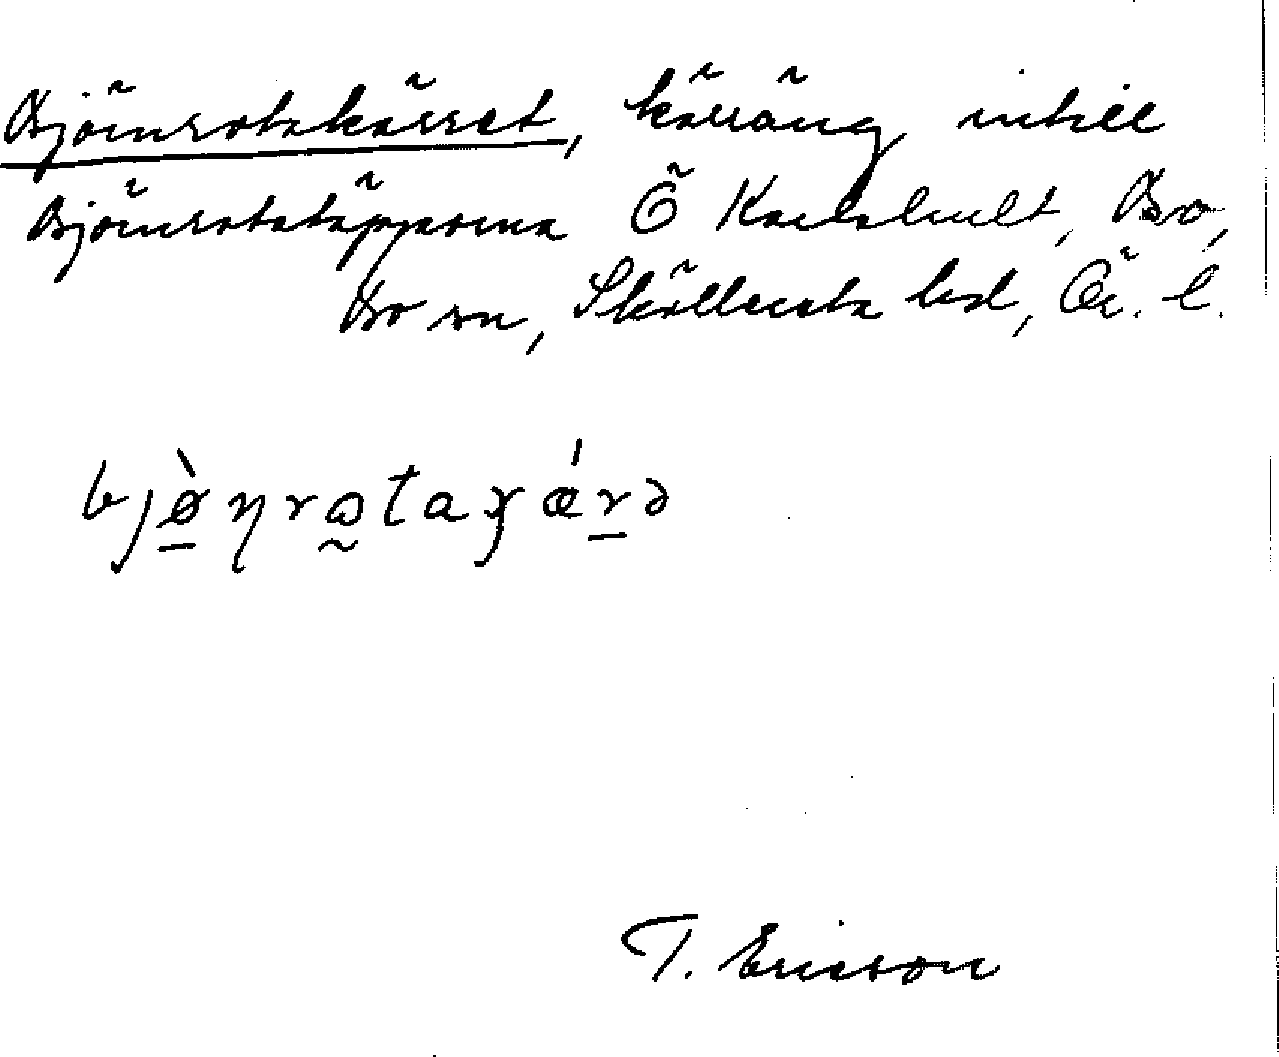 Björnrotakärret, kärräng intill
Björnrotatäpporna Ö Karlshult, Bo,
Bo sn, Sköllersta hd, Ör. l.
bjø̀ŋrɷtaɣǽrə
T. Ericson